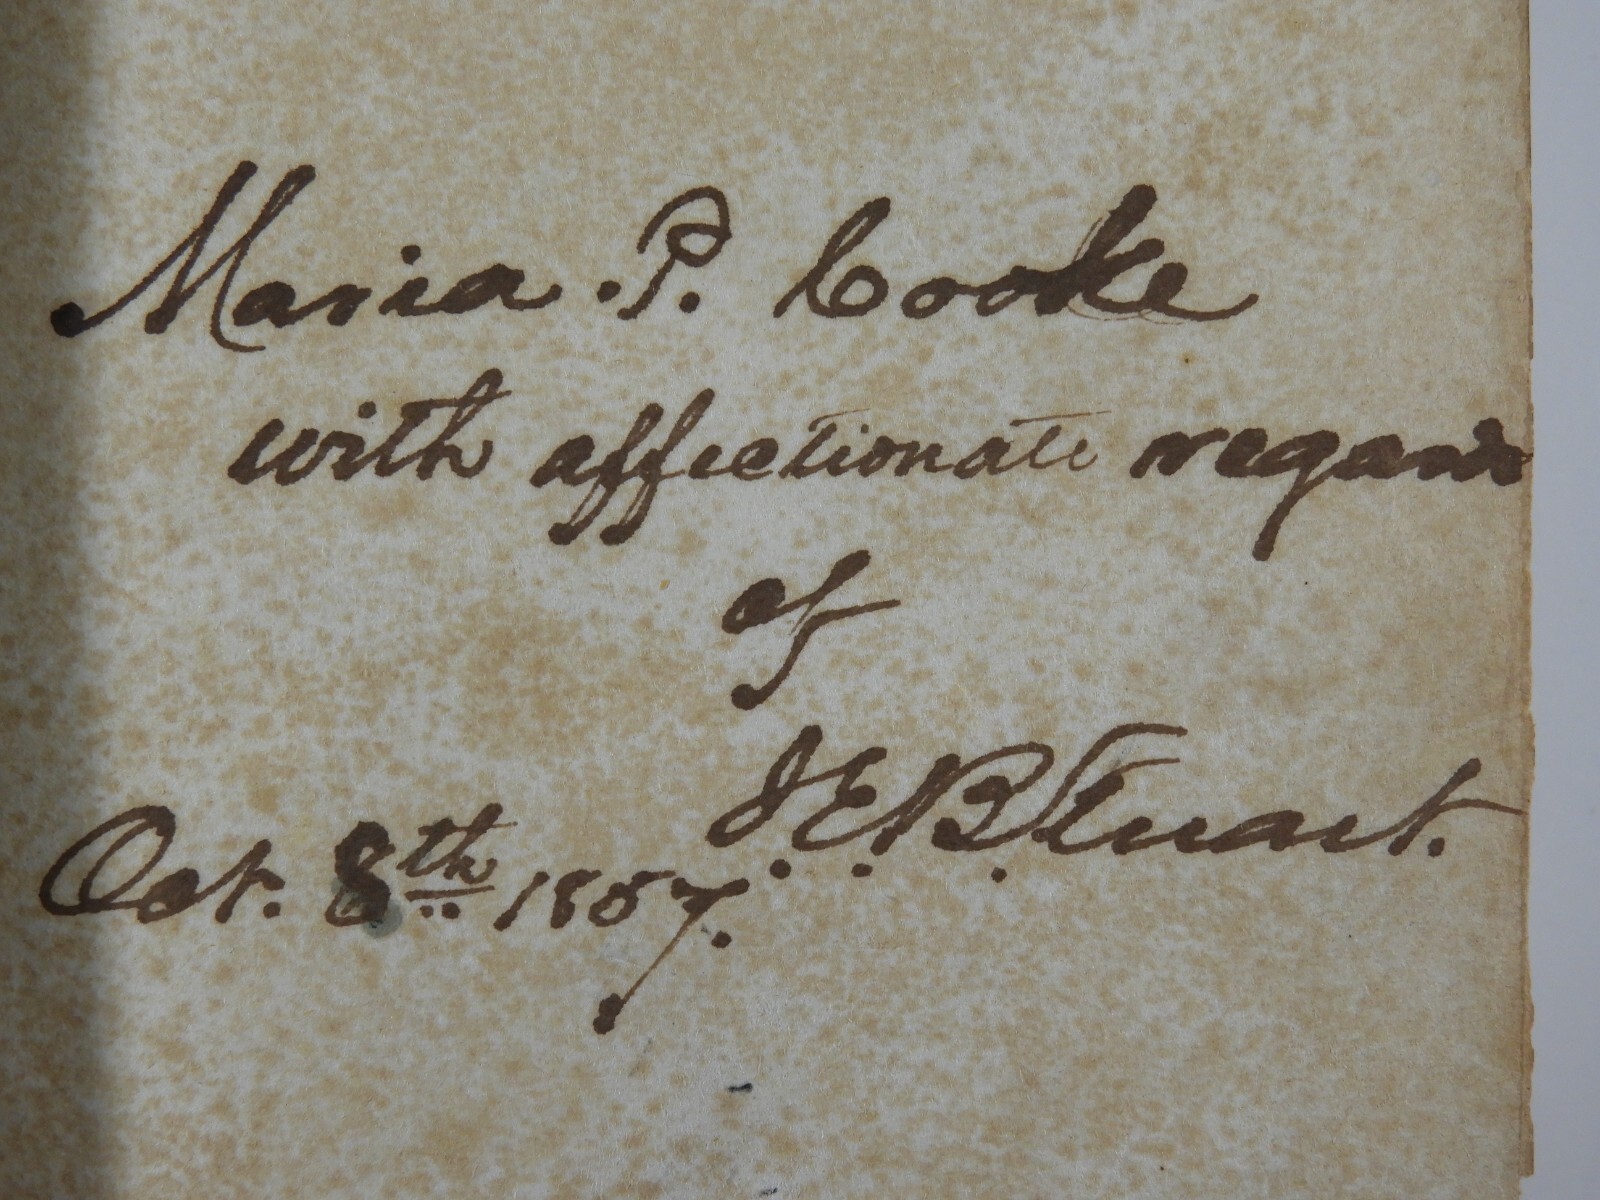 Maria . P. Cooke
with affectionate regard
of
J. E. B. Stuart.
Oct. 8th 1857.